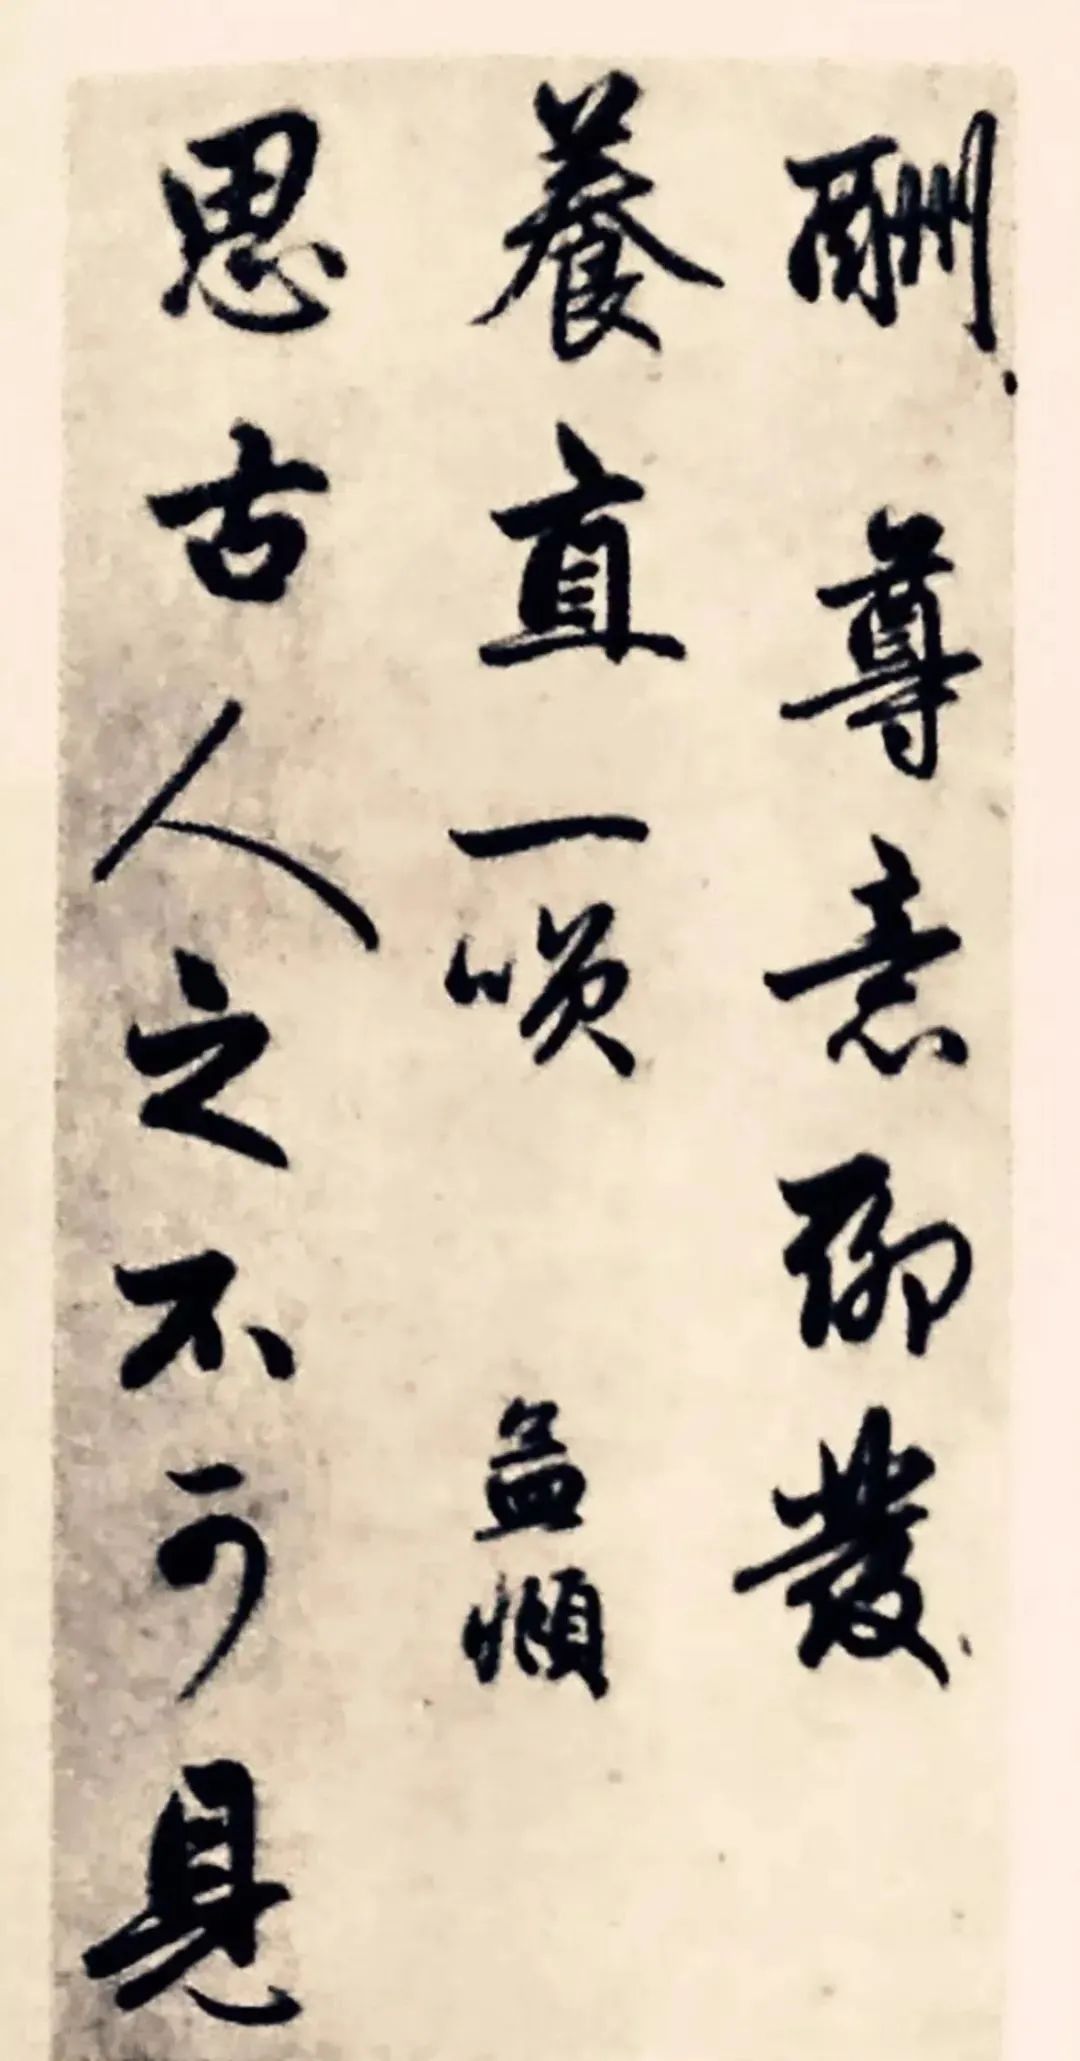 酬尊意聊發
養直一 孟頫
思古人之不可見